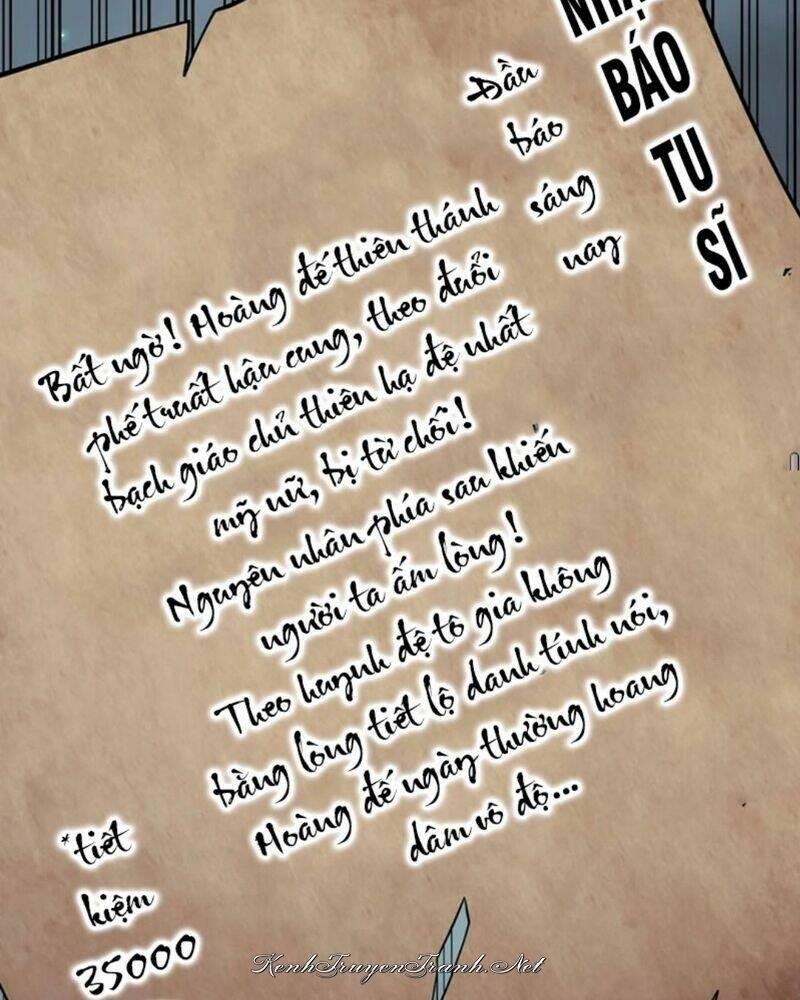 BÁO
TU
SĨ
Đầu
báo
sáng
nay
Bất ngờ! Hoàng đế thiên thánh
phế truất hậu cung, theo đuổi
bạch giáo chủ thiên hạ đệ nhất
mỹ nữ, bị từ chối!
Nguyên nhân phía sau khiến
người ta ấm lòng!
Theo huynh đệ tô gia không
bằng lòng tiết lộ danh tính nói,
Hoàng đế ngày thường hoang
dâm vô độ...
*tiết
kiệm
35000
KenhTruyenTranh.Net